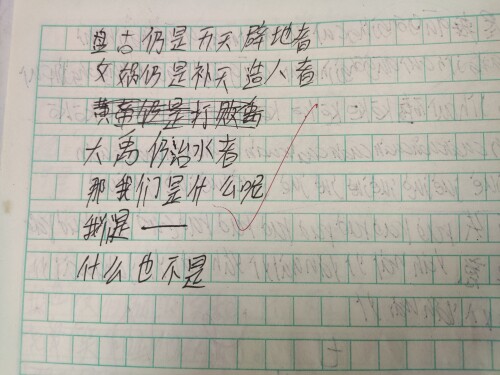 盘古仍是开天辟地者
女娲仍是补天造人者
黄帝仍是打败
大禹仍治水者
那我们是什么呢
我们是——
什么也不是